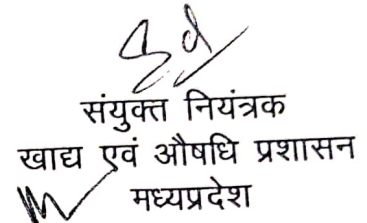 Sd
संयुक्त नियंत्रक
खाद्य एवं औषधि प्रशासन
मध्यप्रदेश